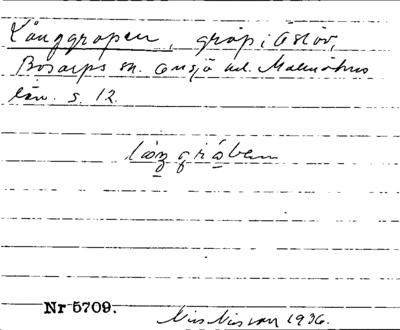 Långgropen, grop i Öslöv,
Bosarps sn. Onsjö hd. Malmöhus
län. s. 12.
Nr 5709.
Nils Nilsson 1936.